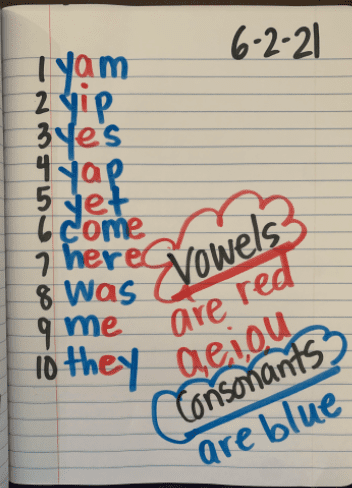 6-2-21
1 yam
2 yip
3 yes
4 yap
5 yet
6 come
7 here
8 was
9 me
10 they
Vowels
are red
a,e,i,o,u
Consonants
are blue